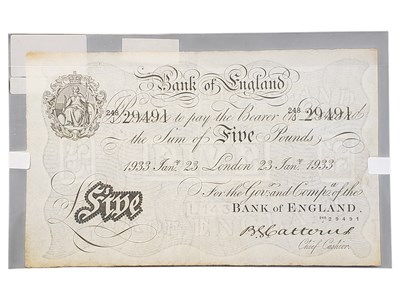 Bank of England
248 29491 to pay the Bearer 248 29491
the Sum of Five Pounds
1933 Janʸ. 23 London 23 Janʸ. 1933
For the Govʳ. and Compᵃ. of the
BANK OF ENGLAND.
Five
29491
B G Catterns
Chief Cashier.